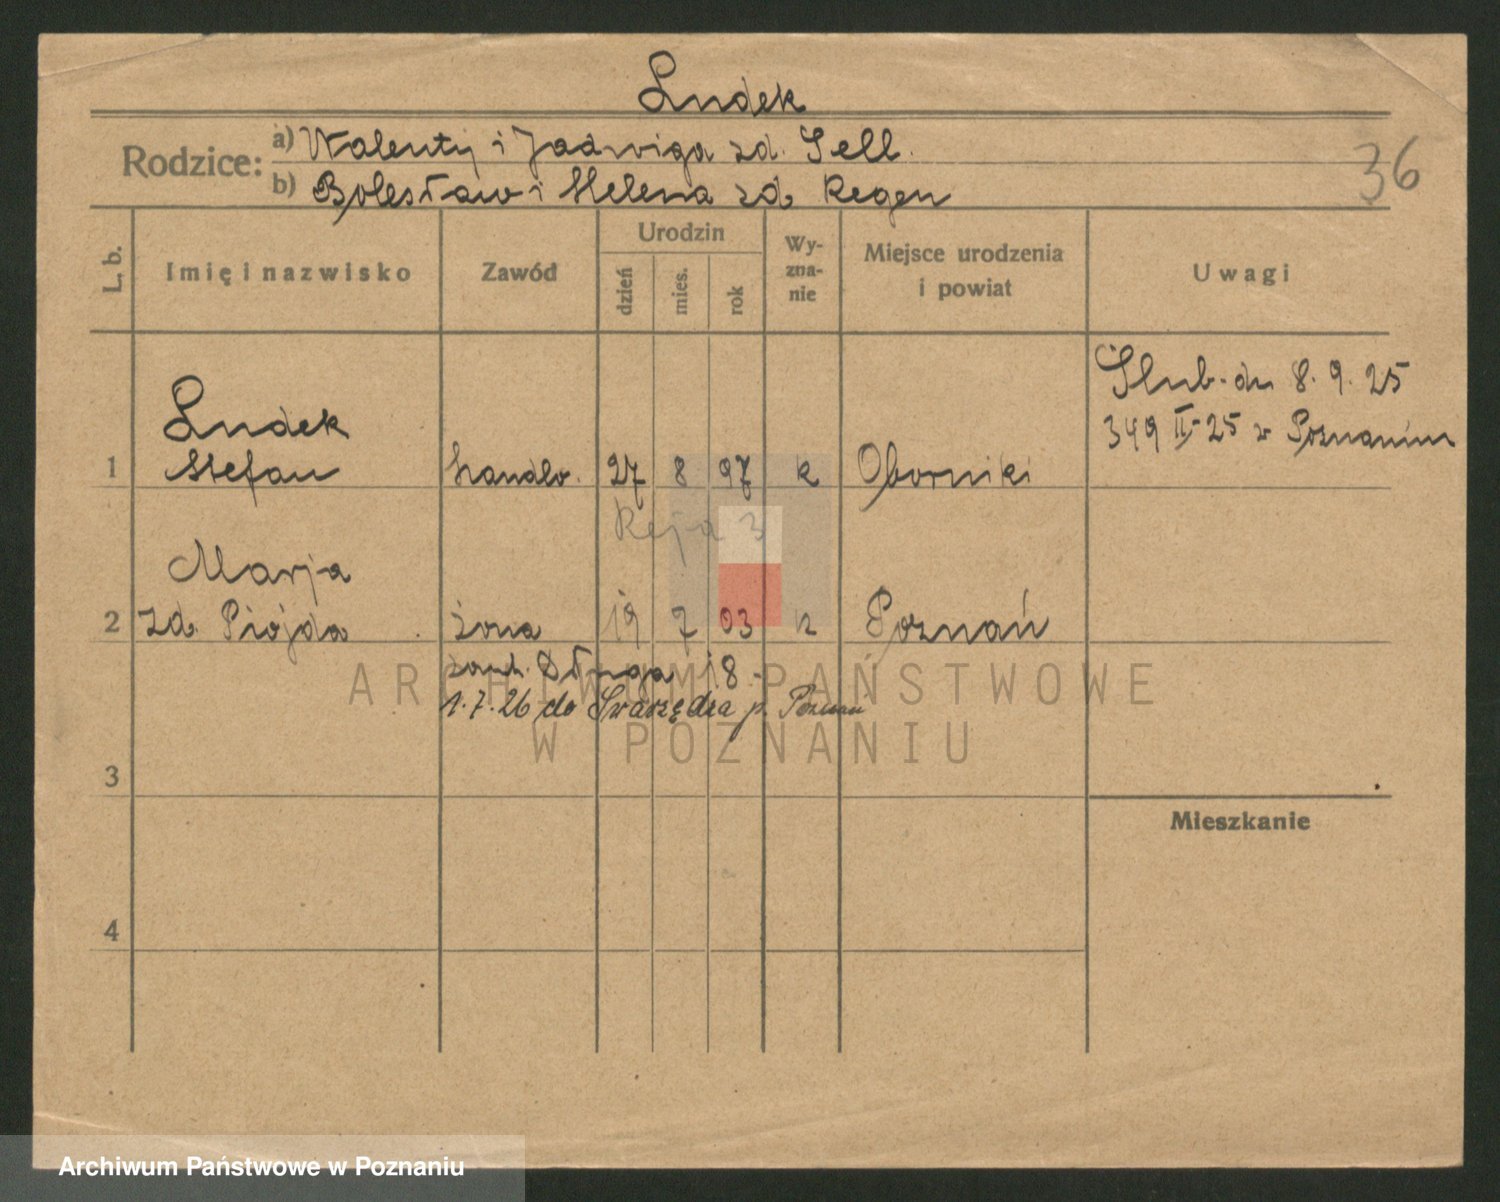 Ludek
Rodzice: a) Walenty i Jadwiga zd. Sell.
b) Bolesław i Helena zd. Regen
36
L. b. Imię i nazwisko Zawód Urodzin dzień mies. rok Wy-zna-nie Miejsce urodzenia i powiat Uwagi
Ślub. dn 8. 9. 25
349 II-25 w Poznaniu
Ludek
1 Stefan handlo. 27 8 97 k Oborniki
Reja 3
Marja
2 zd. Piojda żona 19 7 03 k Poznań
zam. Długa 18 -
1.7.26 do Swarzędza p. Poznań
ARCHIWUM PAŃSTWOWE
W POZNANIU
3
Mieszkanie
4
Archiwum Państwowe w Poznaniu